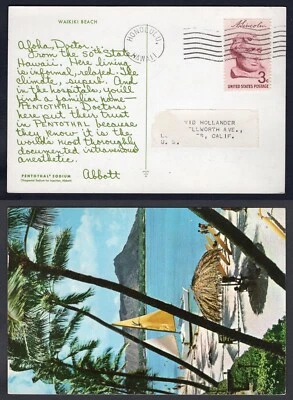 WAIKIKI BEACH
Aloha, Doctor -
From the 50th State,
Hawaii. Here living
is informal, relaxed. The
climate, superb. And
in the hospitals, you'll
find a familiar name-
PENTOTHAL. Doctors
here put their trust
in PENTOTHAL because
they know it is the
world's most thoroughly
documented intravenous
anesthetic.
Abbott
PENTOTHAL® SODIUM
HONOLULU
HAWAII
Lincoln
3¢
UNITED STATES POSTAGE
HOLLANDER
LLWORTH AVE.,
CALIF.
U.